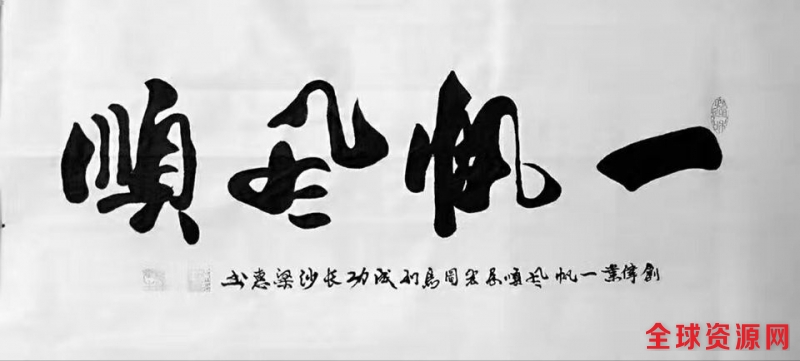 一帆風順
創偉業一帆風順展宏圖馬到成功長沙梁惠书
全球资源网